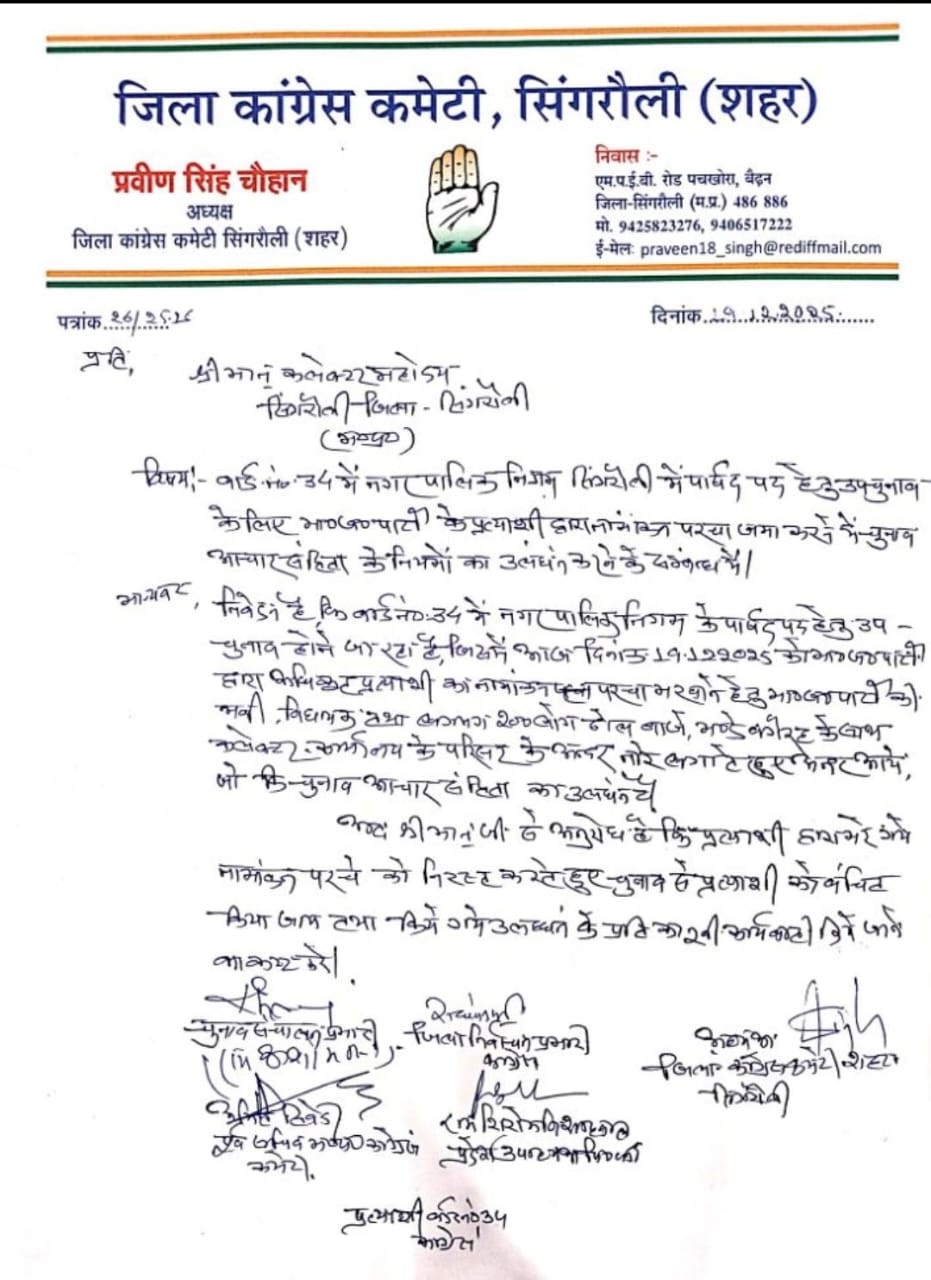 जिला कांग्रेस कमेटी, सिंगरौली (शहर)
प्रवीण सिंह चौहान
अध्यक्ष
जिला कांग्रेस कमेटी सिंगरौली (शहर)
निवास :-
एम.प.ई.बी. रोड पचखोरा, बैढ़न
जिला-सिंगरौली (म.प्र.) 486 886
मो. 9425823276, 9406517222
ई-मेलः praveen18_singh@rediffmail.com
पत्रांक 26/25-26
दिनांक 19.12.2025
प्रति,
श्रीमान् कलेक्टर महोदय
सिंगरौली जिला - सिंगरौली
(म०प्र०)
विषय:- वार्ड नं० 34 में नगर पालिक निगम सिंगरौली में पार्षद पद हेतु उपचुनाव
के लिए भा०ज०पार्टी के प्रत्याशी द्वारा नामांकन परचा जमा करने में चुनाव
आचार संहिता के नियमों का उलंघन करने के सम्बन्ध में।
मान्यवर, निवेदन है कि वार्ड नं०-34 में नगर पालिक निगम के पार्षद पद हेतु उप-
चुनाव होने जा रहा है, जिसमें आज दिनांक 19.12.2025 को भा०ज०पार्टी
द्वारा अधिकृत प्रत्याशी का नामांकन परचा भरने हेतु भा०ज०पार्टी की
मंत्री, विधायक तथा लगभग 200 लोग ढोल बाजे, झण्डे बैगैरह के साथ
कलेक्टर कार्यालय के परिसर के अन्दर नारे लगाते हुए अन्दर आये,
जो कि चुनाव आचार संहिता का उलंघन है
अतः श्रीमान् जी से अनुरोध है कि प्रत्याशी द्वारा भरे गये
नामांकन परचे को निरस्त करते हुए चुनाव से प्रत्याशी को वंचित
किया जाय तथा किये गये उलंघन के प्रति कानूनी कार्यवाही किये जाने
का कष्ट करें।
चुनाव संचालन प्रभारी
जिला निर्वाचन प्रभारी
कांग्रेस
अध्यक्ष
जिला कांग्रेस कमेटी शहर
सिंगरौली
अमित द्विवेदी
पूर्व सचिव म०प्र० कांग्रेस
कमेटी.
प्रत्याशी वार्ड नं० 34
कांग्रेस